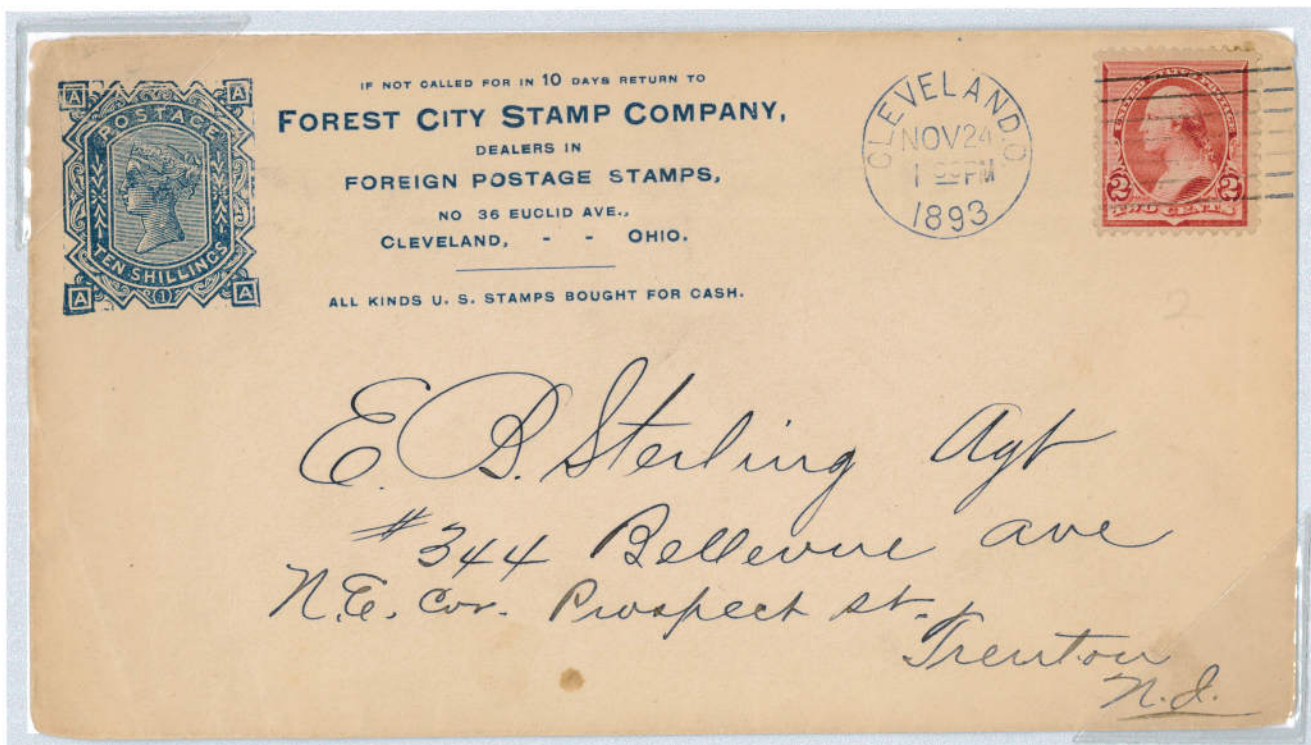 POSTAGE
TEN SHILLINGS
A
A
A
A
1
IF NOT CALLED FOR IN 10 DAYS RETURN TO
FOREST CITY STAMP COMPANY,
DEALERS IN
FOREIGN POSTAGE STAMPS,
NO 36 EUCLID AVE.,
CLEVELAND, - - OHIO.
ALL KINDS U. S. STAMPS BOUGHT FOR CASH.
CLEVELAND, O.
NOV 24
1 PM
1893
UNITED STATES POSTAGE
2 2
TWO CENTS
2
E. B. Sterling Agt
#344 Bellevue ave
N.E. Cor. Prospect st.
Trenton
N.J.